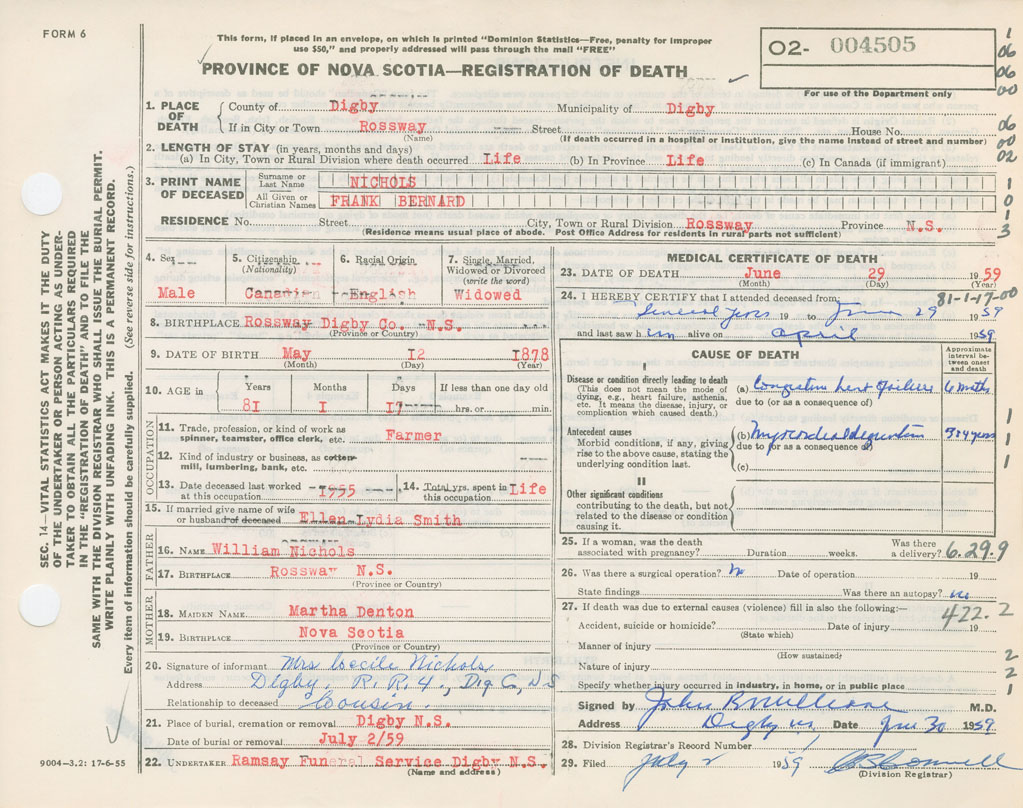 FORM 6
This form, if placed in an envelope, on which is printed "Dominion Statistics—Free, penalty for improper
use $50," and properly addressed will pass through the mail "FREE"
PROVINCE OF NOVA SCOTIA—REGISTRATION OF DEATH
O2- 004505
For use of the Department only
1
06
06
00
06
00
02
1
0
1
3
SEC. 14—VITAL STATISTICS ACT MAKES IT THE DUTY
OF THE UNDERTAKER OR PERSON ACTING AS UNDER-
TAKER TO OBTAIN ALL THE PARTICULARS REQUIRED
IN THE "REGISTRATION OF DEATH" AND TO FILE THE
SAME WITH THE DIVISION REGISTRAR WHO SHALL ISSUE THE BURIAL PERMIT.
WRITE PLAINLY WITH UNFADING INK. THIS IS A PERMANENT RECORD.
Every item of information should be carefully supplied. (See reverse side for instructions.)
1. PLACE OF DEATH
County of Digby Municipality of Digby
If in City or Town Rossway Street House No.
(Name) (If death occurred in a hospital or institution, give the name instead of street and number)
2. LENGTH OF STAY (in years, months and days)
(a) In City, Town or Rural Division where death occurred Life (b) In Province Life (c) In Canada (if immigrant)
3. PRINT NAME OF DECEASED
Surname or Last Name NICHOLS
All Given or Christian Names FRANK BERNARD
RESIDENCE No. Street City, Town or Rural Division Rossway Province N.S.
(Residence means usual place of abode. Post Office Address for residents in rural parts not sufficient)
4. Sex 5. Citizenship (Nationality) 6. Racial Origin 7. Single, Married, Widowed or Divorced (write the word)
Male Canadian English Widowed
8. BIRTHPLACE Rossway Digby Co. N.S.
(Province or Country)
9. DATE OF BIRTH May 12 1878
(Month) (Day) (Year)
10. AGE in Years Months Days If less than one day old
81 1 17 hrs. or min.
OCCUPATION
11. Trade, profession, or kind of work as
spinner, teamster, office clerk, etc. Farmer
12. Kind of industry or business, as cotton
mill, lumbering, bank, etc.
13. Date deceased last worked at this occupation 1955 14. Total yrs. spent in this occupation Life
15. If married give name of wife
or husband of deceased Ellen Lydia Smith
FATHER
16. NAME William Nichols
17. BIRTHPLACE Rossway N.S.
(Province or Country)
MOTHER
18. MAIDEN NAME Martha Denton
19. BIRTHPLACE Nova Scotia
(Province or Country)
20. Signature of informant Mrs Cecile Nichols
Address Digby R. R. 4., Dig Co, N.S
Relationship to deceased Cousin.
21. Place of burial, cremation or removal Digby N.S.
Date of burial or removal July 2/59
22. UNDERTAKER Ramsay Funeral Service Digby N.S.
(Name and address)
9004—3.2: 17-6-55
MEDICAL CERTIFICATE OF DEATH
23. DATE OF DEATH June 29 1959
(Month) (Day) (Year)
81-1-17-00
24. I HEREBY CERTIFY that I attended deceased from:
Several years 19 to June 29 1959
and last saw him alive on april 1959
CAUSE OF DEATH
Approximate interval between onset and death
I
Disease or condition directly leading to death
(This does not mean the mode of
dying, e.g., heart failure, asthenia,
etc. It means the disease, injury, or
complication which caused death.)
(a) Congestive heart failure 6 months
due to (or as a consequence of)
Antecedent causes
Morbid conditions, if any, giving
rise to the above cause, stating the
underlying condition last.
(b) Myocardial degeneration years
due to (or as a consequence of)
(c)
1
1
1
II
Other significant conditions
contributing to the death, but not
related to the disease or condition
causing it.
25. If a woman, was the death
associated with pregnancy? Duration weeks. Was there a delivery?
6.29.9
26. Was there a surgical operation? No Date of operation 19
State findings Was there an autopsy? no
27. If death was due to external causes (violence) fill in also the following:—
422.2
Accident, suicide or homicide? Date of injury 19
(State which)
Manner of injury
(How sustained)
Nature of injury
Specify whether injury occurred in industry, in home, or in public place
2
2
1
Signed by John M.D.
Address Digby Date June 30 1959
28. Division Registrar's Record Number
29. Filed July 2 1959
(Division Registrar)